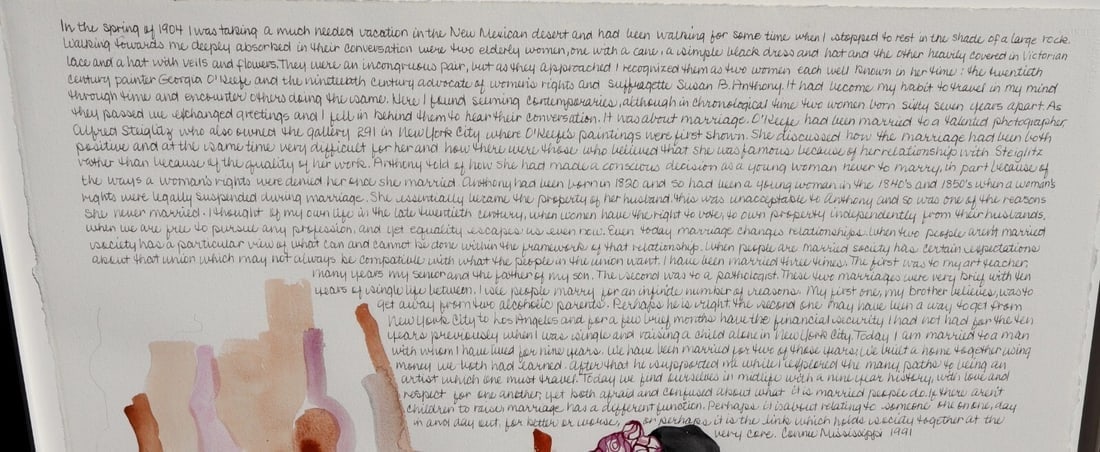 In the spring of 1904 I was taking a much needed vacation in the New Mexican desert and had been walking for some time when I stopped to rest in the shade of a large rock.
Walking towards me deeply absorbed in their conversation were two elderly women, one with a cane, a simple black dress and hat and the other heavily covered in Victorian
lace and a hat with veils and flowers. They were an incongruous pair, but as they approached I recognized them as two women each well known in her time: the twentieth
century painter Georgia O'Keefe and the nineteenth century advocate of women's rights and Suffragette Susan B. Anthony. It had become my habit to travel in my mind
through time and encounter others doing the same. Here I found seeming contemporaries, although in chronological time two women born sixty seven years apart. As
they passed we exchanged greetings and I fell in behind them to hear their conversation. It was about marriage. O'Keefe had been married to a talented photographer,
Alfred Steiglitz who also owned the gallery 291 in New York City where O'Keefe's paintings were first shown. She discussed how the marriage had been both
positive and at the same time very difficult for her and how there were those who believed that she was famous because of her relationship with Steiglitz
rather than because of the quality of her work. Anthony told of how she had made a conscious decision as a young woman never to marry, in part because of
the ways a woman's rights were denied her once she married. Anthony had been born in 1820 and so had been a young woman in the 1840's and 1850's when a woman's
rights were legally suspended during marriage. She essentially became the property of her husband. This was unacceptable to Anthony and so was one of the reasons
she never married. I thought of my own life in the late twentieth century, when women have the right to vote, to own property independently from their husbands,
when we are free to pursue any profession, and yet equality escapes us even now. Even today marriage changes relationships. When two people aren't married
society has a particular view of what can and cannot be done within the framework of that relationship. When people are married society has certain expectations
about that union which may not always be compatible with what the people in the union want. I have been married three times. The first was to my art teacher,
many years my senior and the father of my son. The second was to a pathologist. These two marriages were very brief with ten
years of single life between. I see people marry for an infinite number of reasons. My first one, my brother believes, was to
get away from two alcoholic parents. Perhaps he is right. The second one may have been a way to get from
New York City to Los Angeles and for a few brief months have the financial security I had not had for the ten
years previously when I was single and raising a child alone in New York City. Today I am married to a man
with whom I have lived for nine years. We have been married for two of those years. We built a home together using
money we both had earned. After that he supported me while I explored the many paths to being an
artist which one must travel. Today we find ourselves in midlife with a nine year history, with love and
respect for one another, yet both afraid and confused about what it is married people do. If there aren't
children to raise marriage has a different function. Perhaps it is about relating to someone one on one, day
in and day out, for better or worse, or perhaps it is the link which holds society together at the
very core. Connie Mississippi 1991